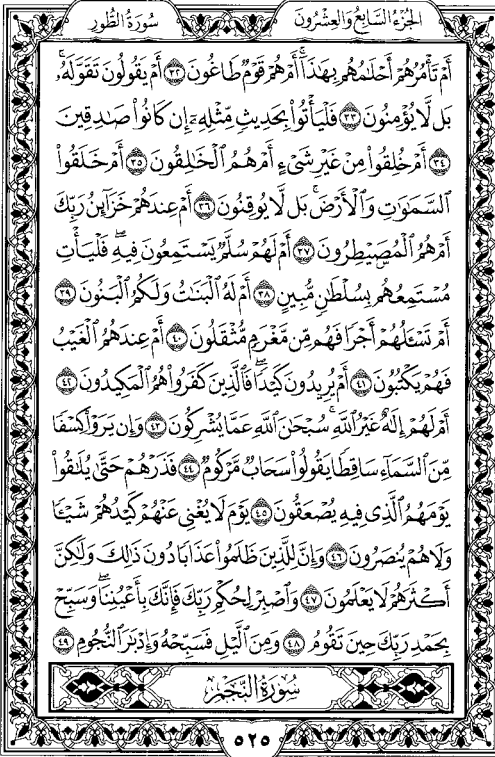 سُورَةُ الطُّورِ الجُزْءُ السَّابِعُ وَالعِشْرُونَ
أَمْ تَأْمُرُهُمْ أَحْلَٰمُهُم بِهَٰذَآ ۚ أَمْ هُمْ قَوْمٌ طَاغُونَ ٣٢ أَمْ يَقُولُونَ تَقَوَّلَهُۥ ۚ
بَل لَّا يُؤْمِنُونَ ٣٣ فَلْيَأْتُوا۟ بِحَدِيثٍ مِّثْلِهِۦٓ إِن كَانُوا۟ صَٰدِقِينَ
٣٤ أَمْ خُلِقُوا۟ مِنْ غَيْرِ شَىْءٍ أَمْ هُمُ ٱلْخَٰلِقُونَ ٣٥ أَمْ خَلَقُوا۟
ٱلسَّمَٰوَٰتِ وَٱلْأَرْضَ ۚ بَل لَّا يُوقِنُونَ ٣٦ أَمْ عِندَهُمْ خَزَآئِنُ رَبِّكَ
أَمْ هُمُ ٱلْمُصَۣيْطِرُونَ ٣٧ أَمْ لَهُمْ سُلَّمٌ يَسْتَمِعُونَ فِيهِ ۖ فَلْيَأْتِ
مُسْتَمِعُهُم بِسُلْطَٰنٍ مُّبِينٍ ٣٨ أَمْ لَهُ ٱلْبَنَٰتُ وَلَكُمُ ٱلْبَنُونَ ٣٩
أَمْ تَسْـَٔلُهُمْ أَجْرًا فَهُم مِّن مَّغْرَمٍ مُّثْقَلُونَ ٤٠ أَمْ عِندَهُمُ ٱلْغَيْبُ
فَهُمْ يَكْتُبُونَ ٤١ أَمْ يُرِيدُونَ كَيْدًا ۖ فَٱلَّذِينَ كَفَرُوا۟ هُمُ ٱلْمَكِيدُونَ ٤٢
أَمْ لَهُمْ إِلَٰهٌ غَيْرُ ٱللَّهِ ۚ سُبْحَٰنَ ٱللَّهِ عَمَّا يُشْرِكُونَ ٤٣ وَإِن يَرَوْا۟ كِسْفًا
مِّنَ ٱلسَّمَآءِ سَاقِطًا يَقُولُوا۟ سَحَابٌ مَّرْكُومٌ ٤٤ فَذَرْهُمْ حَتَّىٰ يُلَٰقُوا۟
يَوْمَهُمُ ٱلَّذِى فِيهِ يُصْعَقُونَ ٤٥ يَوْمَ لَا يُغْنِى عَنْهُمْ كَيْدُهُمْ شَيْـًٔا
وَلَا هُمْ يُنصَرُونَ ٤٦ وَإِنَّ لِلَّذِينَ ظَلَمُوا۟ عَذَابًا دُونَ ذَٰلِكَ وَلَٰكِنَّ
أَكْثَرَهُمْ لَا يَعْلَمُونَ ٤٧ وَٱصْبِرْ لِحُكْمِ رَبِّكَ فَإِنَّكَ بِأَعْيُنِنَا ۖ وَسَبِّحْ
بِحَمْدِ رَبِّكَ حِينَ تَقُومُ ٤٨ وَمِنَ ٱلَّيْلِ فَسَبِّحْهُ وَإِدْبَٰرَ ٱلنُّجُومِ ٤٩
سُورَةُ النَّجْمِ
٥٢٥